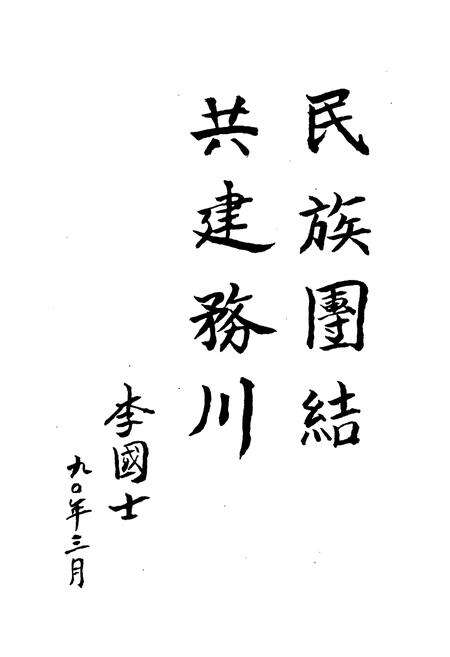 民族團結
共建務川
李國士
九〇年三月